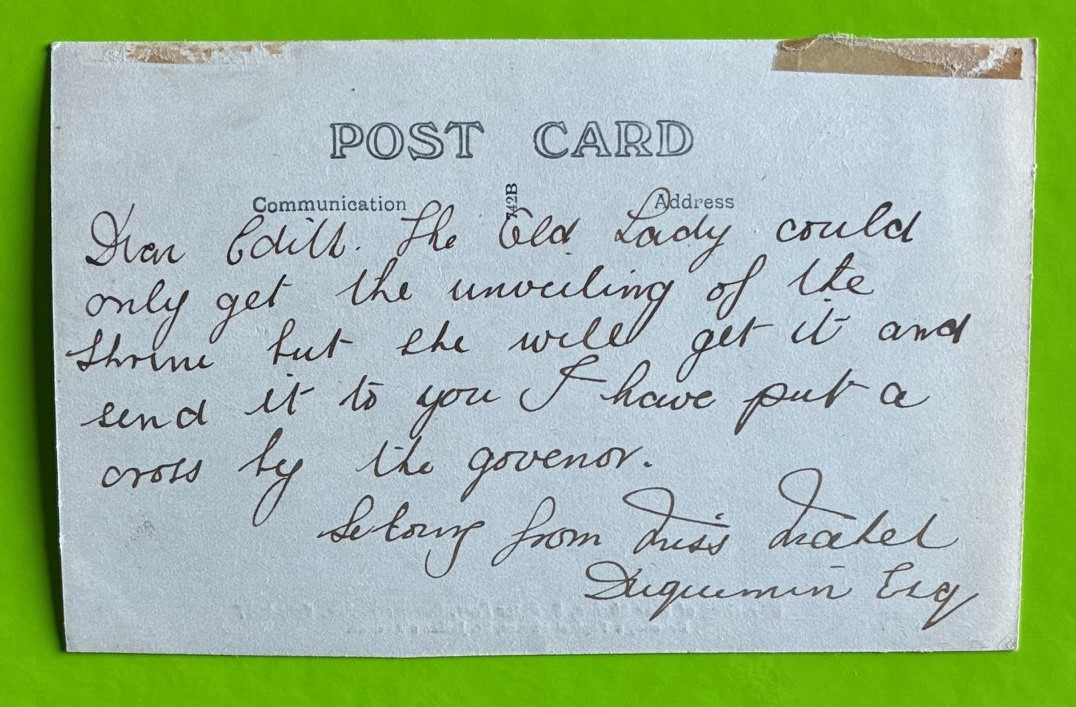 POST CARD
Communication 742B Address
Dear Edith. The Old Lady could
only get the unveiling of the
Shrine but she will get it and
send it to you I have put a
cross by the govenor.
from Miss Mabel
Duquemin Esq